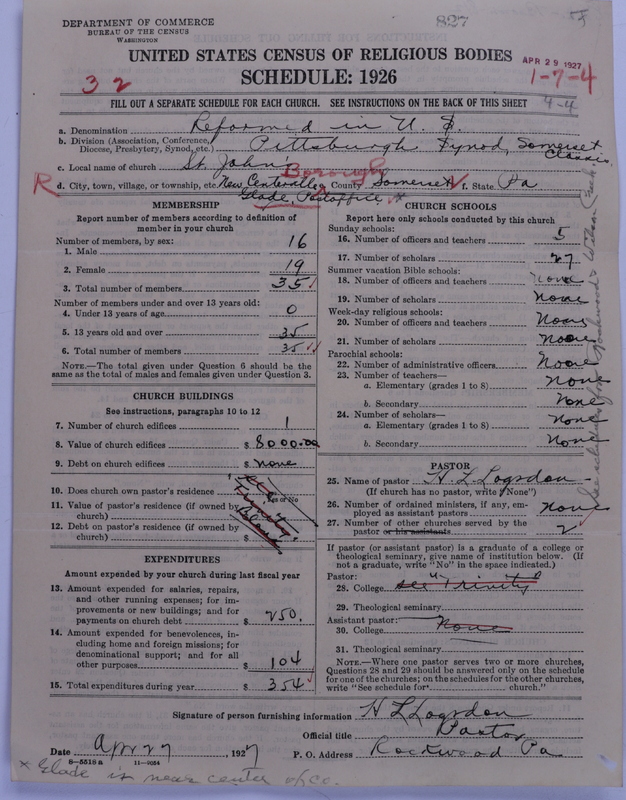 DEPARTMENT OF COMMERCE
BUREAU OF THE CENSUS
WASHINGTON
827
UNITED STATES CENSUS OF RELIGIOUS BODIES
APR 29 1927
SCHEDULE: 1926
32
1-7-4
FILL OUT A SEPARATE SCHEDULE FOR EACH CHURCH. SEE INSTRUCTIONS ON THE BACK OF THIS SHEET
4-4
a. Denomination Reformed in U. S.
b. Division (Association, Conference, Diocese, Presbytery, Synod, etc.) Pittsburgh Synod, Somerset Classis.
c. Local name of church St. John's
Borough
R d. City, town, village, or township, etc. New Centerville e. County Somerset f. State Pa
Glade, Postoffice *
MEMBERSHIP
Report number of members according to definition of member in your church
Number of members, by sex:
1. Male 16
2. Female 19
3. Total number of members 35
Number of members under and over 13 years old:
4. Under 13 years of age 0
5. 13 years old and over 35
6. Total number of members 35
NOTE.—The total given under Question 6 should be the same as the total of males and females given under Question 3.
CHURCH BUILDINGS
See instructions, paragraphs 10 to 12
7. Number of church edifices 1
8. Value of church edifices $ 8000.00
9. Debt on church edifices $ none
10. Does church own pastor's residence
Yes or No
11. Value of pastor's residence (if owned by church) $
12. Debt on pastor's residence (if owned by church) $
see Trinity
EXPENDITURES
Amount expended by your church during last fiscal year
13. Amount expended for salaries, repairs, and other running expenses; for improvements or new buildings; and for payments on church debt $ 250.
14. Amount expended for benevolences, including home and foreign missions; for denominational support; and for all other purposes $ 104
15. Total expenditures during year $ 354
CHURCH SCHOOLS
Report here only schools conducted by this church
Sunday schools:
16. Number of officers and teachers 5
17. Number of scholars 27
Summer vacation Bible schools:
18. Number of officers and teachers none
19. Number of scholars none
Week-day religious schools:
20. Number of officers and teachers None
21. Number of scholars none
Parochial schools:
22. Number of administrative officers None
23. Number of teachers—
a. Elementary (grades 1 to 8) none
b. Secondary None
24. Number of scholars—
a. Elementary (grades 1 to 8) none
b. Secondary None
PASTOR
25. Name of pastor H. L. Logsdon
(If church has no pastor, write "None")
26. Number of ordained ministers, if any, employed as assistant pastors none
27. Number of other churches served by the pastor or his assistants 2
If pastor (or assistant pastor) is a graduate of a college or theological seminary, give name of institution below. (If not a graduate, write "No" in the space indicated.)
Pastor:
28. College see "Trinity"
29. Theological seminary
Assistant pastor:
30. College None
31. Theological seminary
NOTE.—Where one pastor serves two or more churches, Questions 28 and 29 should be answered only on the schedule for one of the churches; on the schedules for the other churches, write "See schedule for church."
Signature of person furnishing information H L Logsdon
Official title Pastor
Date Apr 27, 1927
P. O. Address Rockwood Pa.
8—5518 a 11—9054
* Glade is near center of Co.